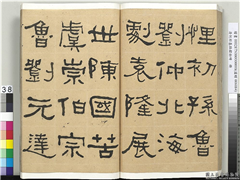 初孫魯
劉仲北海
劇袁隆展
世陳國苦
虞崇伯宗
魯劉元達